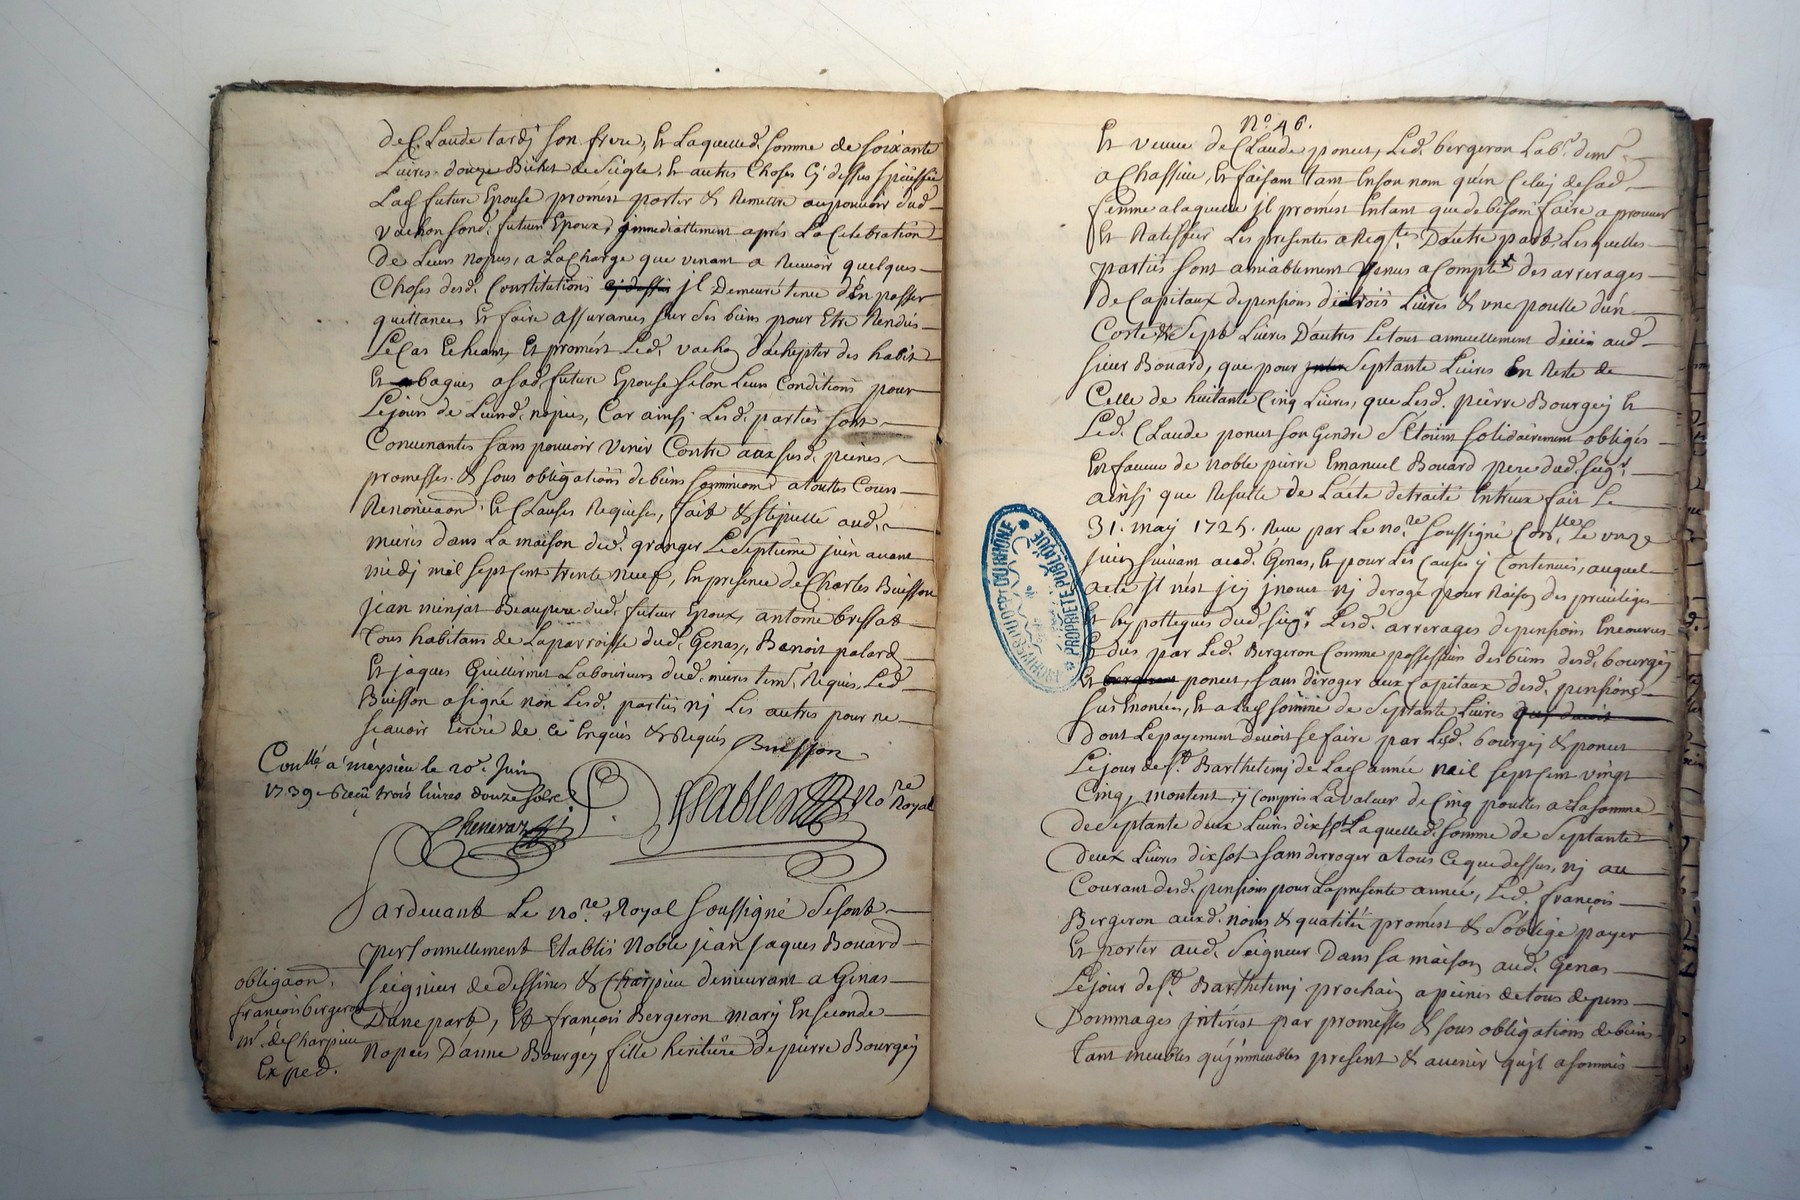 de Claude tardj son frere, Et Laquelled. somme de soixante
Livres, douze Bichet de seigle, Et autres Choses Cj dessus speciffié
Lad future Epouse promést porter & Remettre au pouvoir dud
vachon sond. futeur Epoux, jmmediattement aprés La Celebration
De Leurs nopces, a La Charge que venant a Recevoir quelques
Choses desd. Constitutions cj dessus jl Demeure tenu d'En passer
quittances Et faire assurances sur ses biens pour Etre Rendües
Le Cas Echeant, Et promést Led. vachon d'achepter des habit
Et bagues a sad future Epouse selon Leurs Conditions pour
Le jour de Leursd. nopces, Car ainsj Lesd. parties sont
Convenantes sans pouvoir venir Contre aux susd. peines
promesses & sous obligations de biens soumissions a touttes Cours
Renonciaon & Clauses Requises, fait & stipullé aud.
mieris dans La maison dud. granger Le septiéme juin avant
midj mil sept cent trente neuf, En presence de Charles Buisson
jean minjat Beaupere dud. futeur Epoux, antoine bressat
tous habitans de La parroisse dud. Genas, Benoit palard
Et jaques Guillermet Laboureurs dud. mieris tem. Requis, Led.
Buisson a signé non Lesd. parties nj Les autres pour ne
sçavoir Ecrire de ce Enquis & Requis Buisson
Conllé a meysieu le 20e. Juin
1739 Reçu trois livres douze sols
Chenevaz
Sablier no.re Royal
Pardevant Le no.re Royal soussigné se sont
personnellement Etablis Noble jean jaques Bouard
seigneur de dessines & Charpieu demeurant a Genas
D'une part, Et françois Bergeron mary En seconde
Nopces D'anne Bourgey fille heritiére de pierre Bourgey
obligaon.
françois bergeron
m.r de Charpieu
Exped.
N.o 46.
Et veuve de Claude poncet, Led. bergeron Lab.r dem.t
a Chassieu, Et faisant tant En son nom qu'en Celuj de sad
femme a laquelle jl promést Entant que de besoin faire aprouver
Et Rateffier Les presentes a Req.te D'autre part Lesquelles
parties sont amiablement venus a Compte des arrerages
de Capitaux de pensions de trois Livres & une poulle d'un
Corté & sept Livres D'autres Le tout annuellement düe aud
sieur Bouard, que pour Septante Livres En Reste de
Celle de huitante Cinq Livres, que Lesd. pierre Bourgey Et
Led. Claude poncet son Gendre s'Etoient solidairement obligés
En faveur de noble pierre Emanuel Bouard pere dud. seig.r
ainsj que Resulte de L'acte de traité Entreux fait Le
31. maj 1725. Reçu par Le no.re soussigné Con.llé Le onze
juin suivant aud. Genas, Et pour Les Causes y Contenües, auquel
acte jl n'est jcj jnnové nj derogé pour Raison des privileges
Et hypotteques dud. seig.r Lesd. arrerages de pensions Encourus
& dus par Led. Bergeron Comme possesseur des biens desd. bourgey
Et bergeron poncet, sans deroger aux Capitaux desd. pensions
sus Enoncées, Et a lad somme de septante Livres
Dont Le payement devoit se faire par Lesd. bourgey & poncet
Le jour de s.t Barthelemj de Lad année mil sept cent vingt
Cinq, montent y Compris La valeur de Cinq poulles a La somme
de septante deux Livres dix sols Laquelled. somme de septante
deux Livres dix sol sans derroger a tous Ce que dessus, nj au
Courant desd. pensions pour La presente année, Led. françois
Bergeron auxd. noms & qualités promést & s'oblige payer
Et porter aud. seigneur Dans sa maison aud. Genas
Le jour de s.t Barthelemj prochain a peines de tous depens
Dommages jnterést par promesses & sous obligations de biens
tant meubles qu'jmmeubles present & avenir qu'jl a soumis
ARCHIVES DU DÉPT DU RHÔNE
PROPRIÉTÉ PUBLIQUE